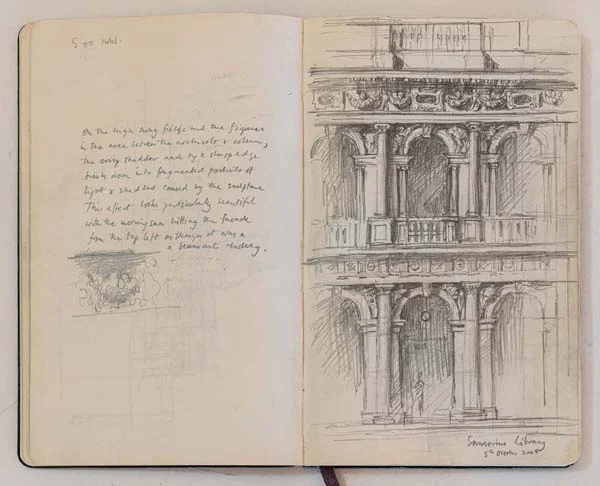 On the high swag frieze and the figures
in the area between the architrave & column,
the every shadow made by a sharp edge
break down into fragmented pockets of
light & shadows caused by the sculpture
This effect looks particularly beautiful
with the morning sun hitting the facade
from the top left as though it was a
a beaux art rendering.
Sansovino Library
5th October 2008